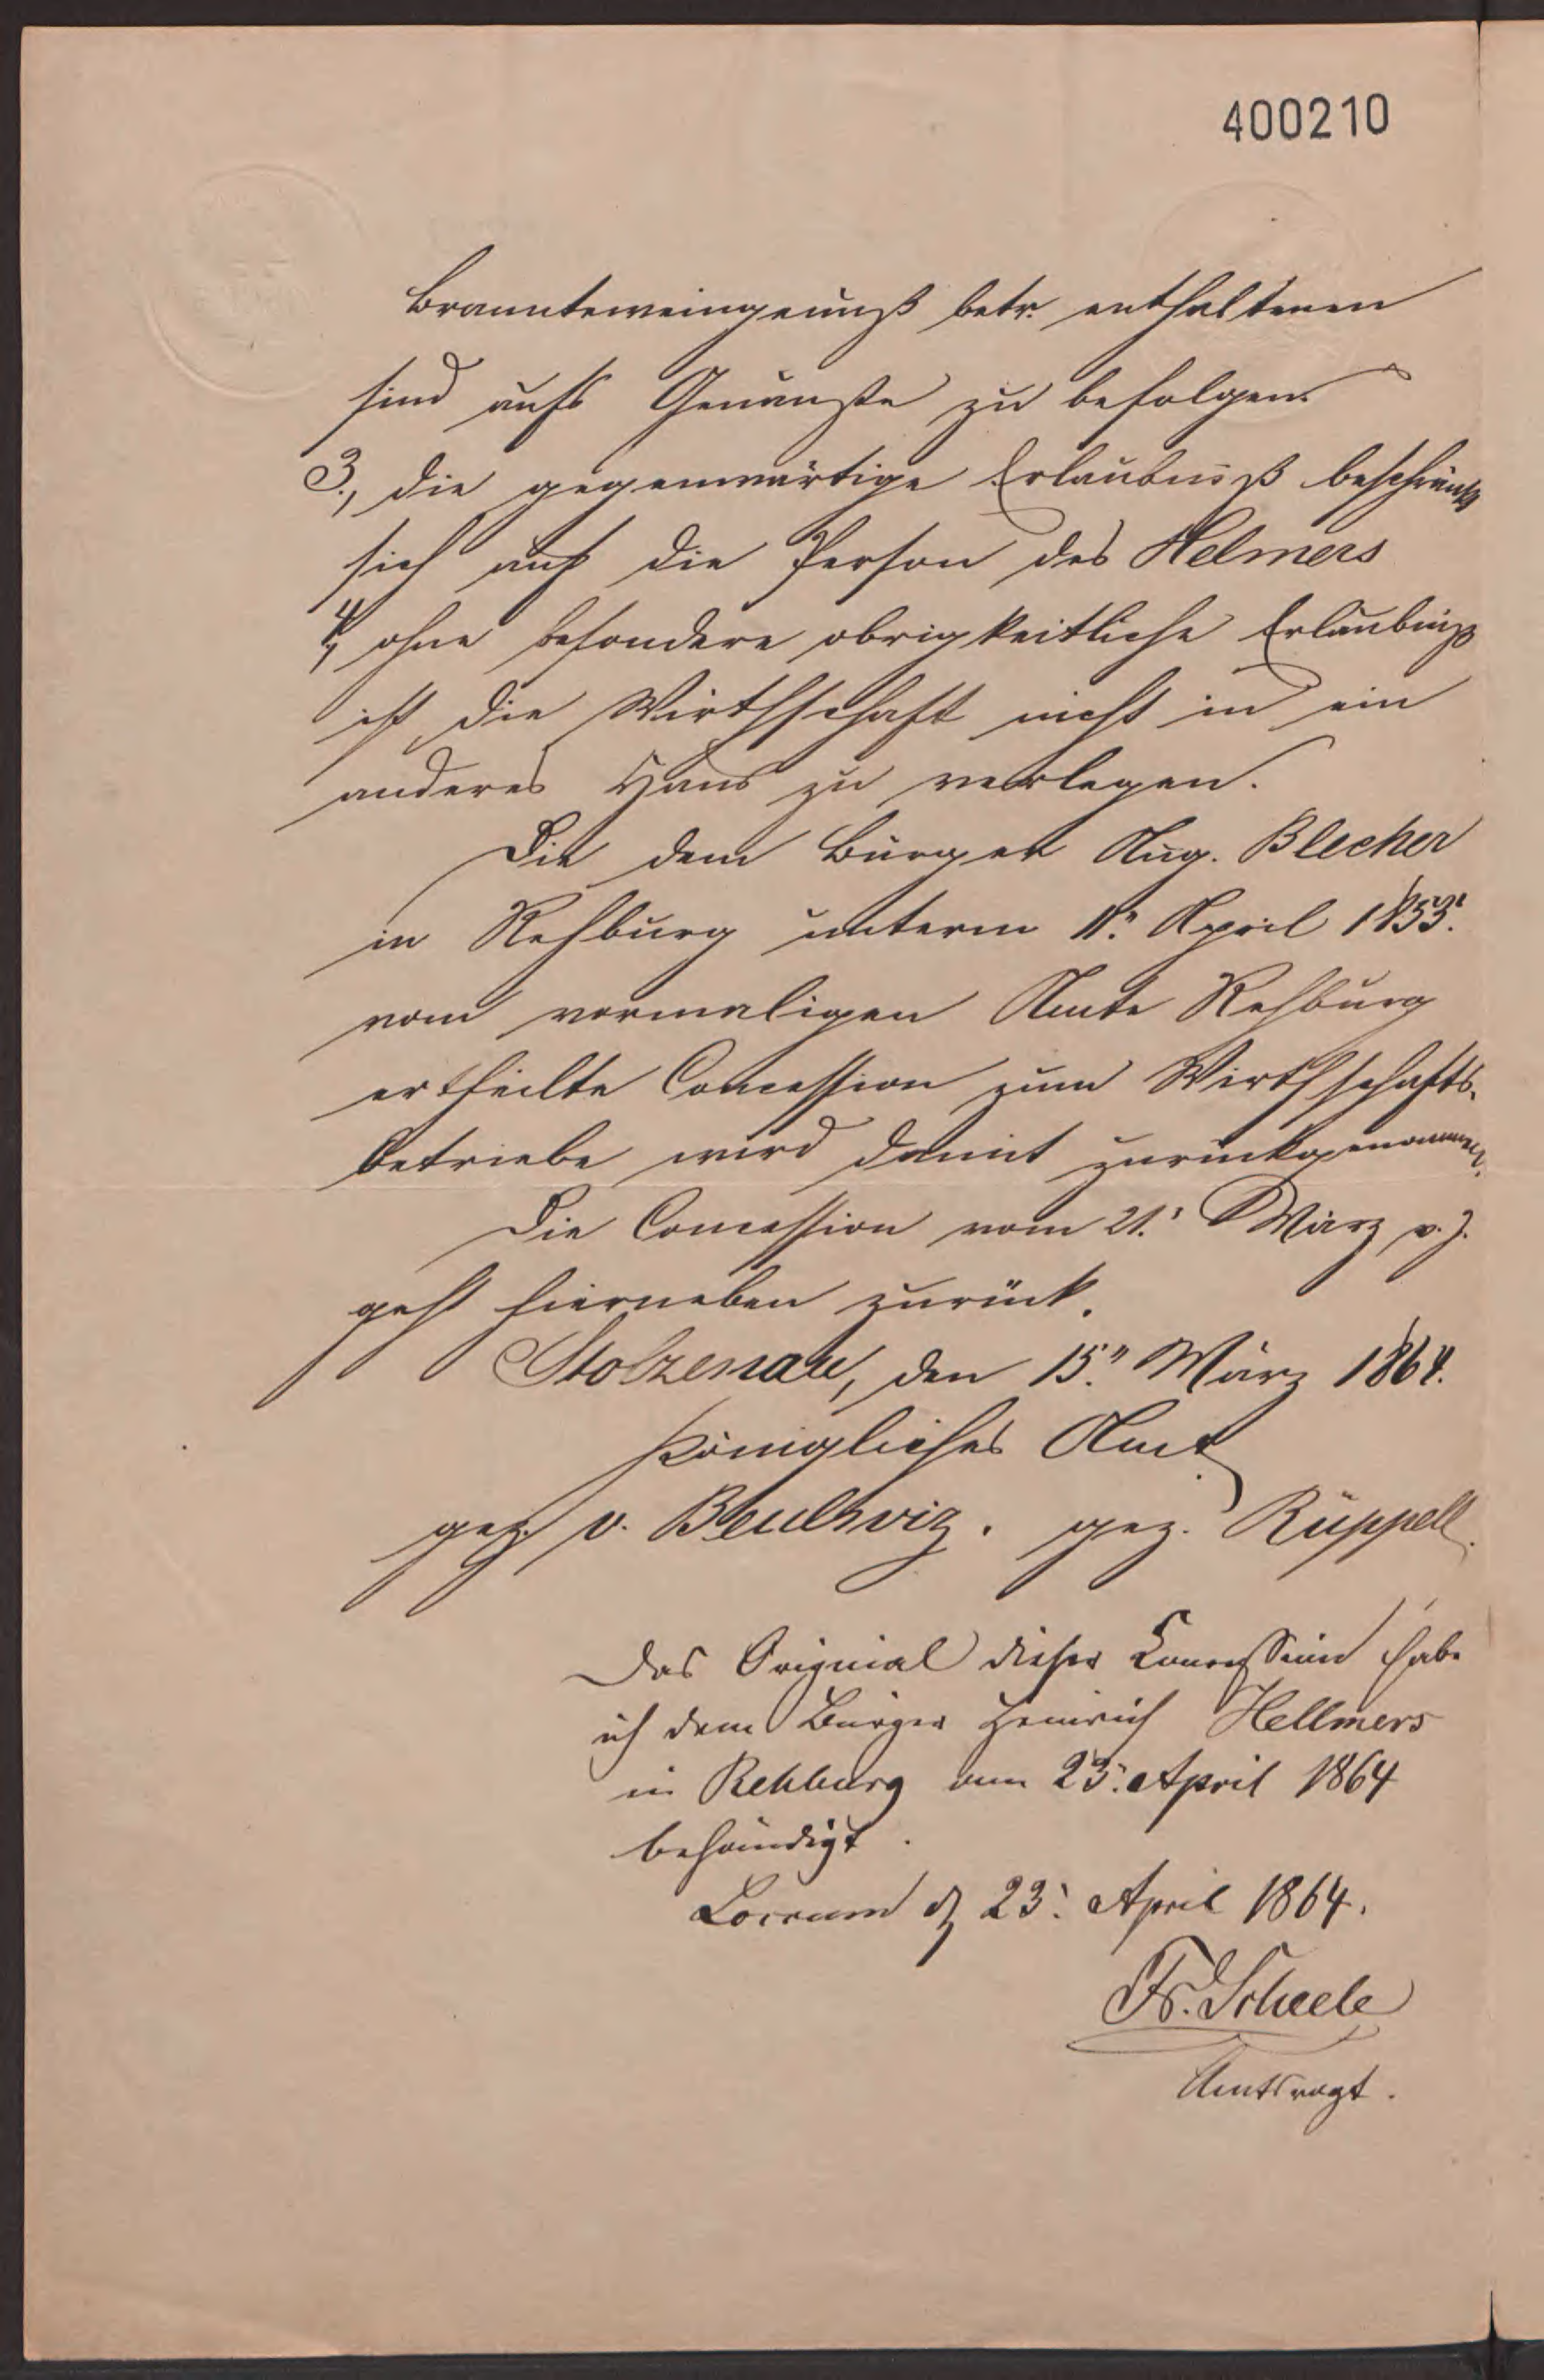 400210
Branntweingenuß betr. enthaltenen
sind aufs Genauste zu befolgen.
3., die gegenwärtige Erlaubniß beschränkt
sich auf die Person des Helmers
4, ohne besondere obrigkeitliche Erlaubniß
ist die Wirthschaft nicht in ein
anderes Haus zu verlegen.
Die dem Bürger Aug. Blecher
in Rehburg unterm 11. April 1853.
vom vormaligen Amte Rehburg
ertheilte Concession zum Wirthschafts-
betriebe wird damit zurückgenommen.
Die Concession vom 21. März v. J.
geht hierneben zurück.
Stolzenau, den 15. März 1864.
Königliches Amt
gez. v. Beulwiz. gez. Rüppell.
Das Original dieser Concession habe
ich dem Bürger Heinrich Hellmers
in Rehburg am 23. April 1864
behändigt.
Loccum d. 23. April 1864.
Fr. Scheele
Amtsvogt.